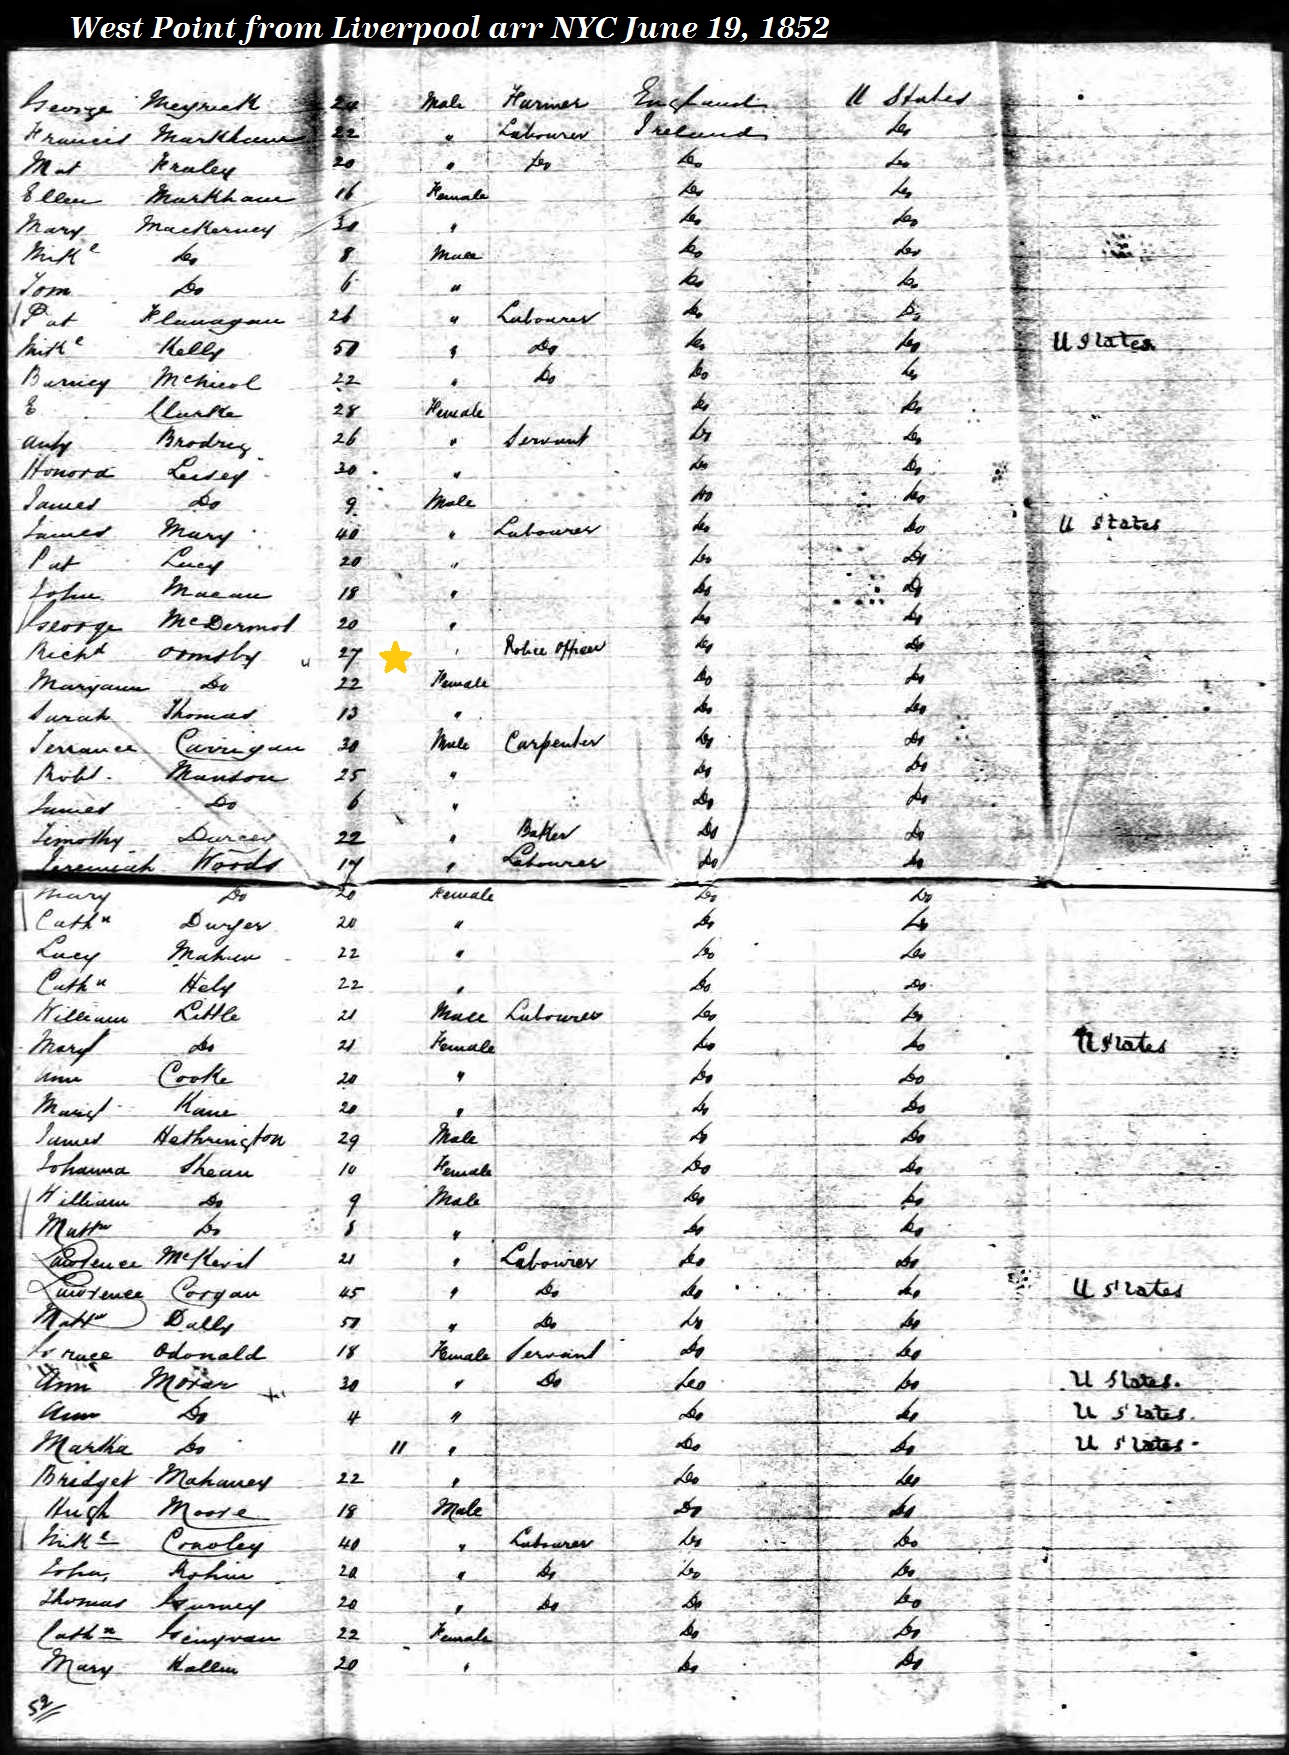 West Point from Liverpool arr NYC June 19, 1852
George Meyrick 24 Male Farmer England U States
Francis Markham 22 " Labourer Ireland Do
Mat Fraley 20 " Do Do Do
Ellen Markham 16 Female Do Do
Mary MacKerney 30 " Do Do
Mike Do 8 Male Do Do
Tom Do 6 " Do Do
Pat Flanagan 26 " Labourer Do Do
Mike Kelly 50 " Do Do Do U States
Barney McNicol 22 " Do Do Do
E Clarke 28 Female Do Do
26 " Servant Do Do
Honora 30 " Do Do
James Do 9 Male Do Do
James Mary 40 " Labourer Do Do U States
Pat Lucy 20 " Do Do
John 18 " Do Do
George McDermot 20 " Do Do
Richd Ormsby 27 " Police Officer Do Do
Maryann Do 22 Female Do Do
Sarah Thomas 13 " Do Do
Terrance Carrigan 30 Male Carpenter Do Do
Robt. Manson 25 " Do Do
James Do 6 " Do Do
Timothy 22 " Baker Do Do
Jeremiah Woods 17 " Labourer Do Do
Mary Do 20 Female Do Do
Cathn 20 " Do Do
Lucy 22 " Do Do
Cathn Hely 22 " Do Do
William Little 21 Male Labourer Do Do
Mary Do 21 Female Do Do U States
Ann Cooke 20 " Do Do
Kane 20 " Do Do
James Hethrington 29 Male Do Do
Johanna Shean 10 Female Do Do
William Do 9 Male Do Do
Do 8 " Do Do
Lawrence 21 " Labourer Do Do
Lawrence Corgan 45 " Do Do Do U States
Dally 50 " Do Do Do
Grace Odonald 18 Female Servant Do Do
Ann Moran 30 " Do Do Do U States.
Ann Do 4 " Do Do U States.
Martha Do 11 " Do Do U States.
Bridget Mahaney 22 " Do Do
Hugh Moore 18 Male Do Do
Mike Conoley 40 " Labourer Do Do
John 20 " Do Do Do
Thomas Gurney 20 " Do Do Do
Cathn 22 Female Do Do
Mary 20 " Do Do
52